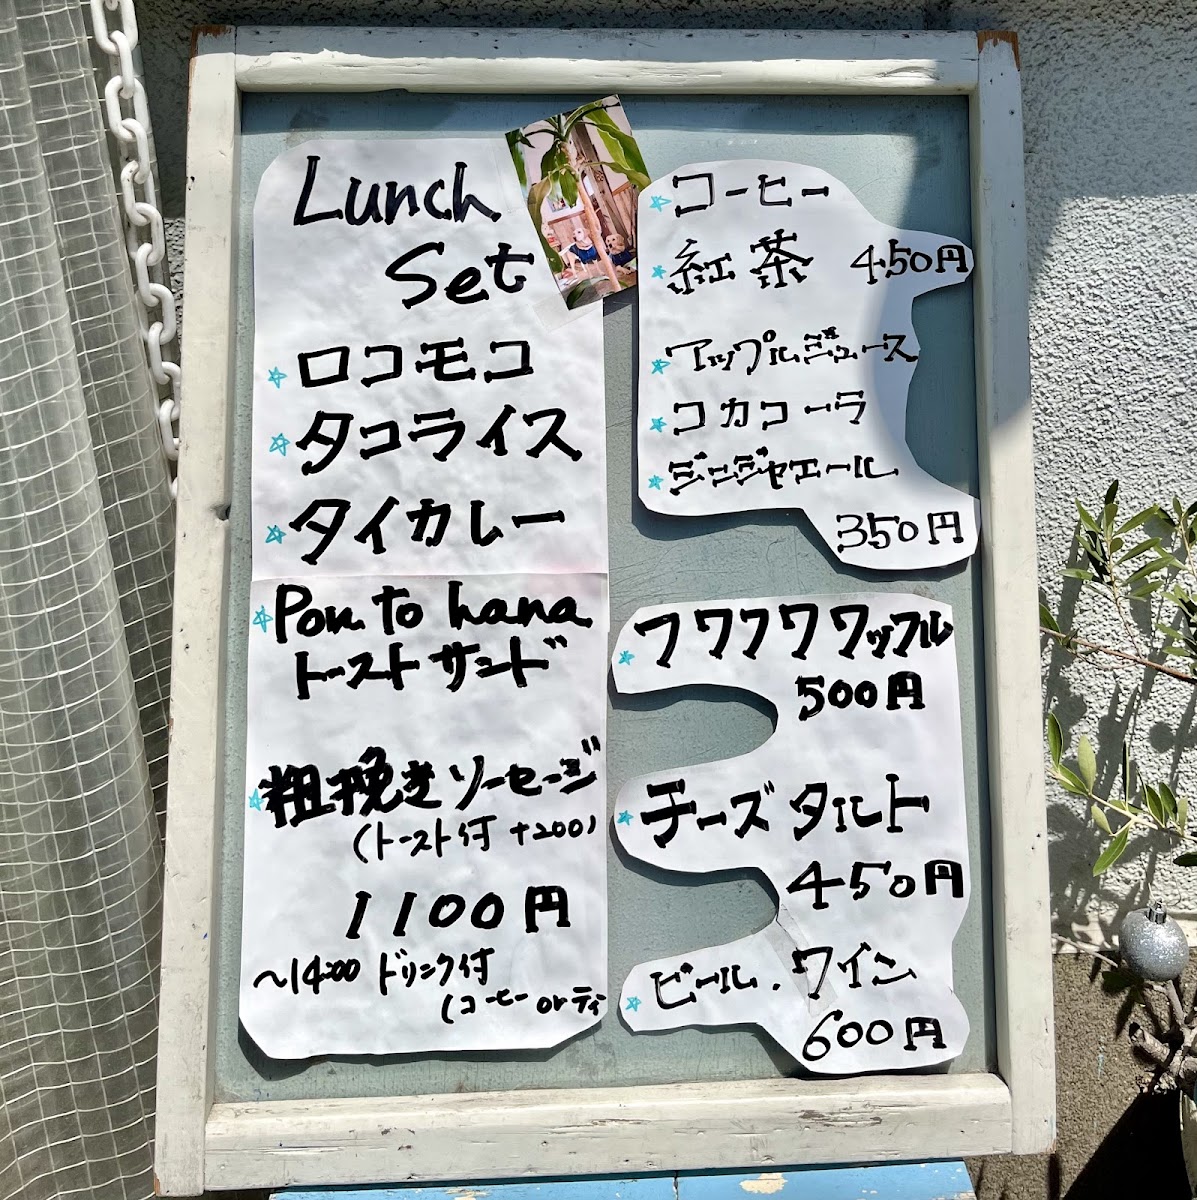 Lunch
Set
☆ロコモコ
☆タコライス
☆タイカレー
☆Pon to hana
トーストサンド
☆粗挽きソーセージ
(トースト付 +200)
1100円
～14:00 ドリンク付
(コーヒー or ティ
☆コーヒー
☆紅茶 450円
☆アップルジュース
☆コカコーラ
☆ジンジャエール
350円
☆フワフワワッフル
500円
☆チーズタルト
450円
☆ビール・ワイン
600円